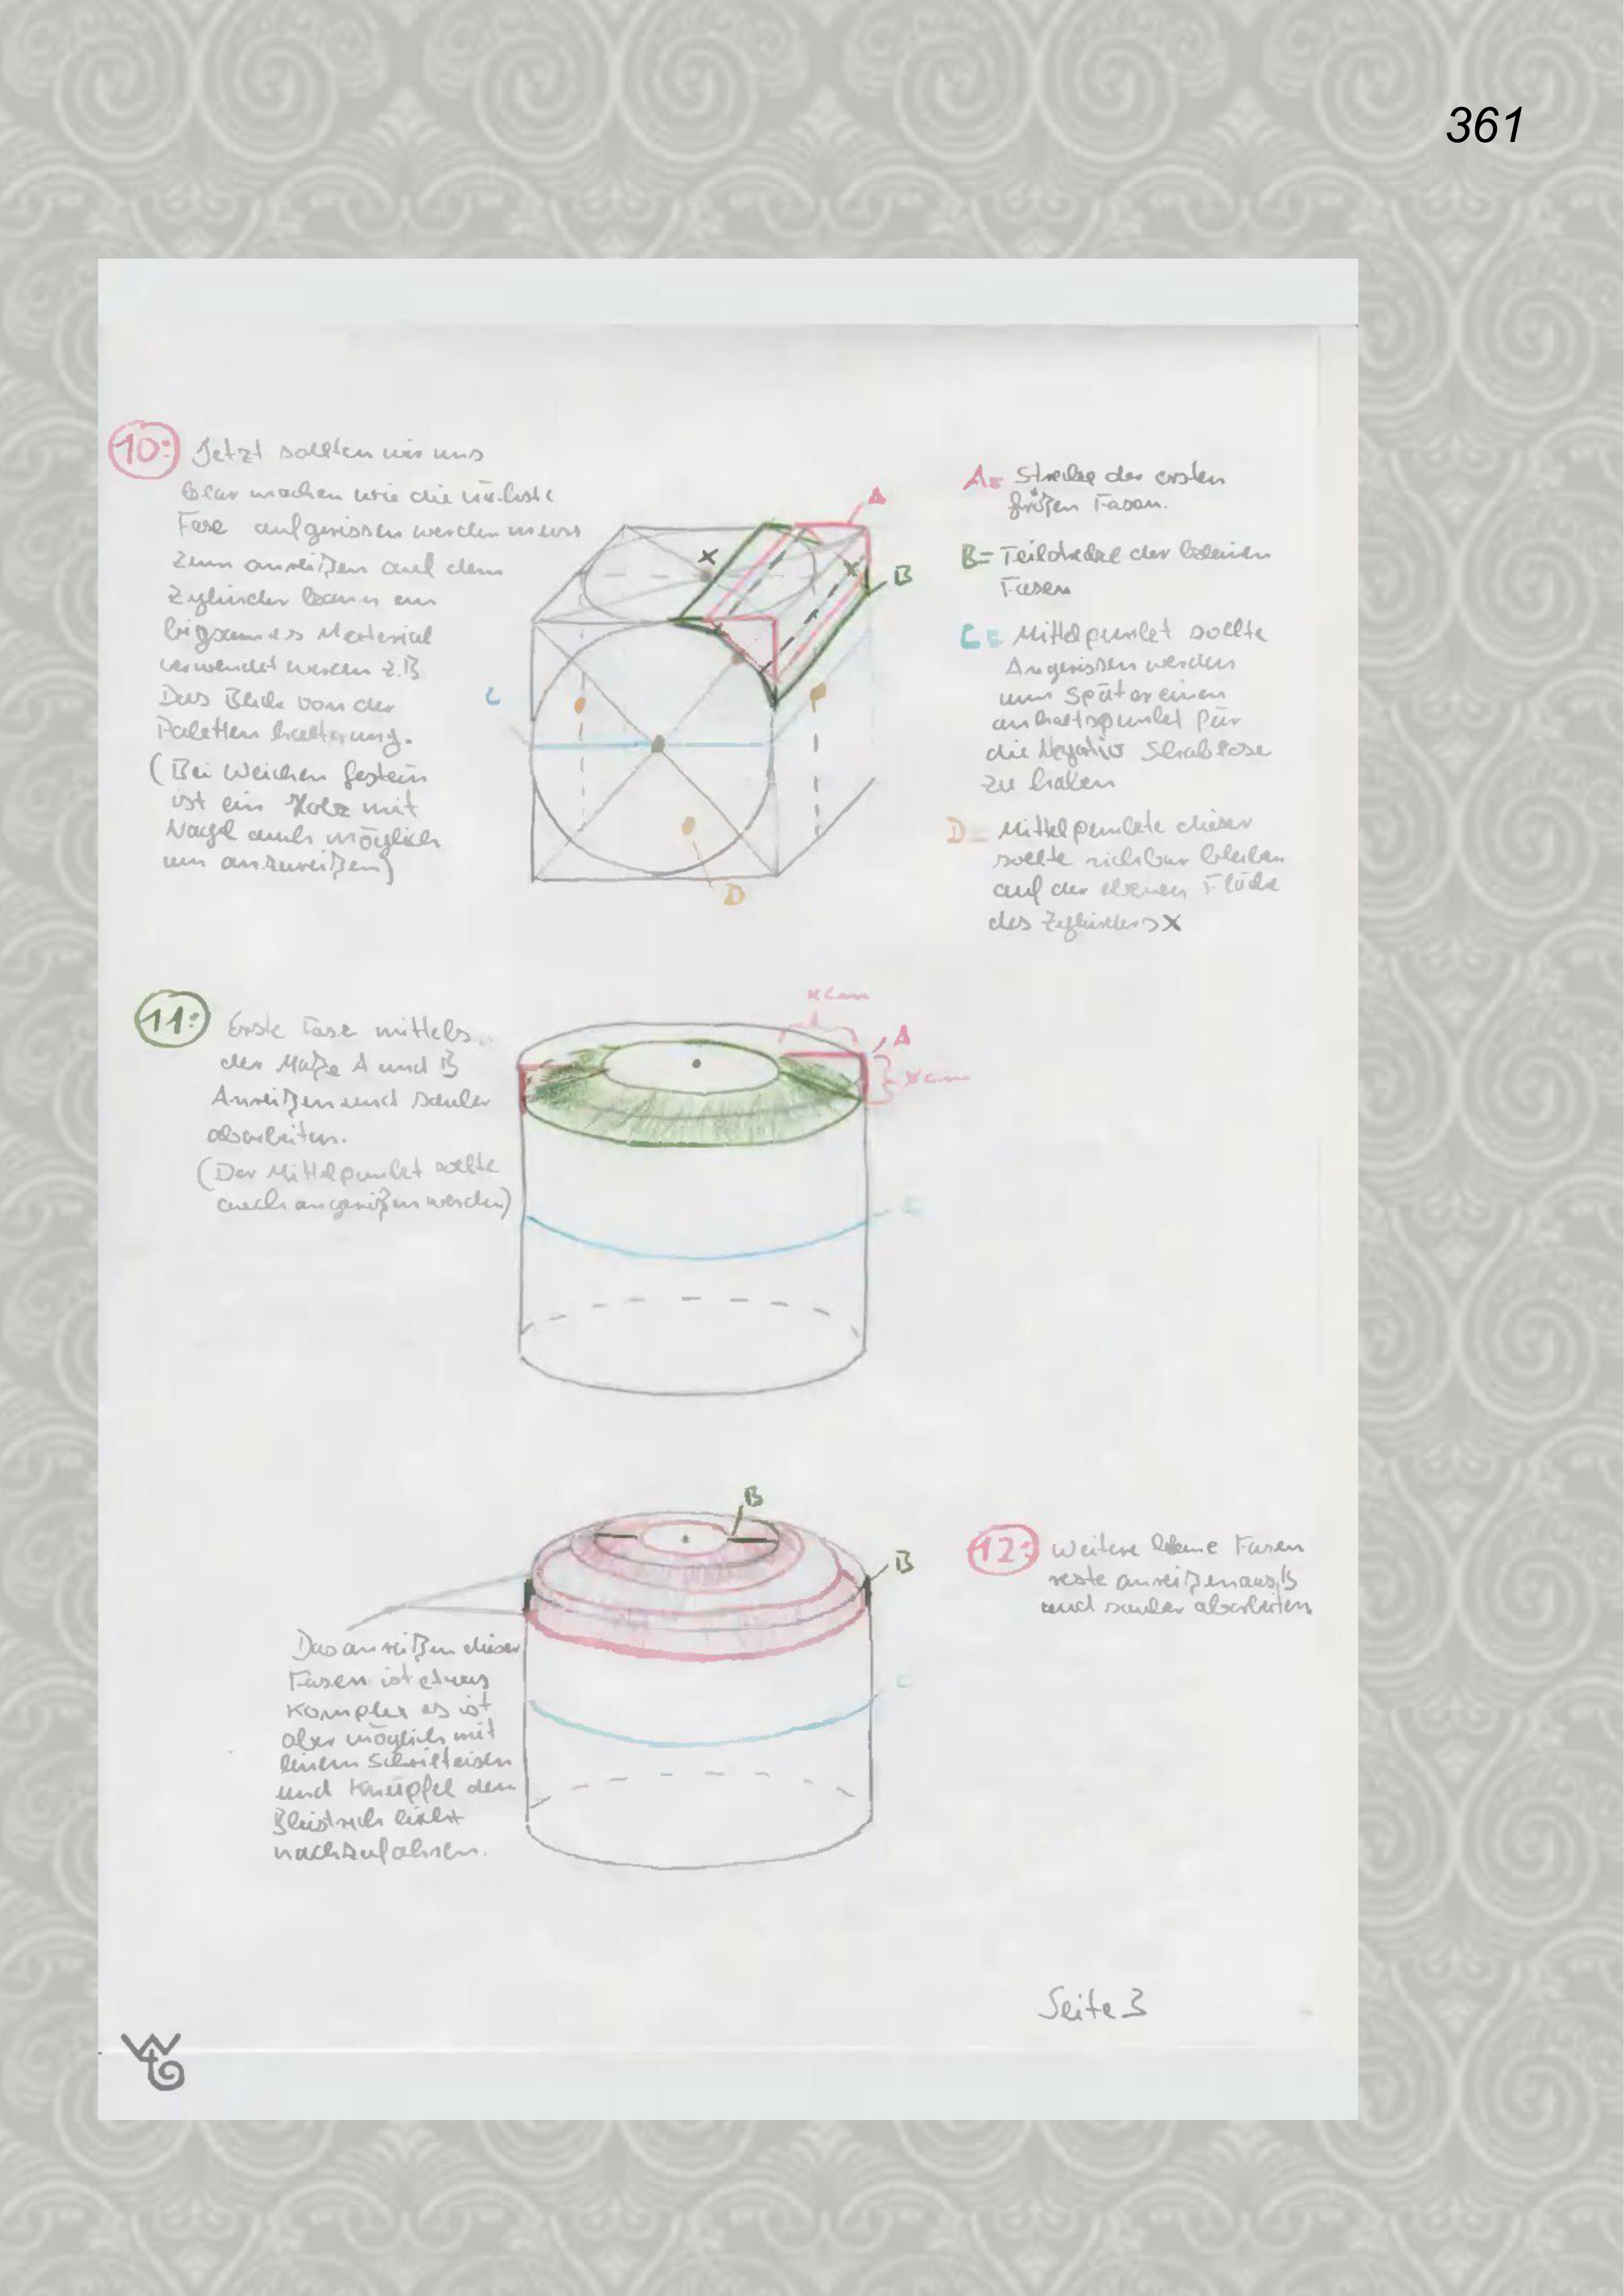 361
10: Jetzt sollten wir uns
klar machen wie die nächste
Fase aufgerissen werden muss
Zum anreißen auf dem
Zylinder kann ein
bigsames Material
verwendet werden z.B
Das Blech von der
Paletten halterung.
(Bei Weichen gestein
ist ein Holz mit
Nagel auch möglich
um anzureißen)
A
B
C
D
x
x
A= Strecke der ersten
großen Fasen.
B= Teilstrecke der kleinen
Fasen
C= Mittelpunkt sollte
Angerissen werden
um Später einen
anhaltspunkt für
die Negativ Schablone
zu haben
D= Mittelpunkte dieser
sollte sichtbar bleiben
auf der ebenen Fläche
des Zylinders X
11: Erste Fase mittels
der Maße A und B
Anreißen und sauber
abarbeiten.
(Der Mittelpunkt sollte
auch angerißen werden)
x cm
A
x cm
C
B
B
C
12: Weitere kleine Fasen
reste anreißen aus B
und sauber abarbeiten
Das anreißen dieser
Fasen ist etwas
Komplex es ist
aber möglich mit
einem Schrifteisen
und Knüpfel den
Bleistrich leicht
nachzufahren.
Seite 3